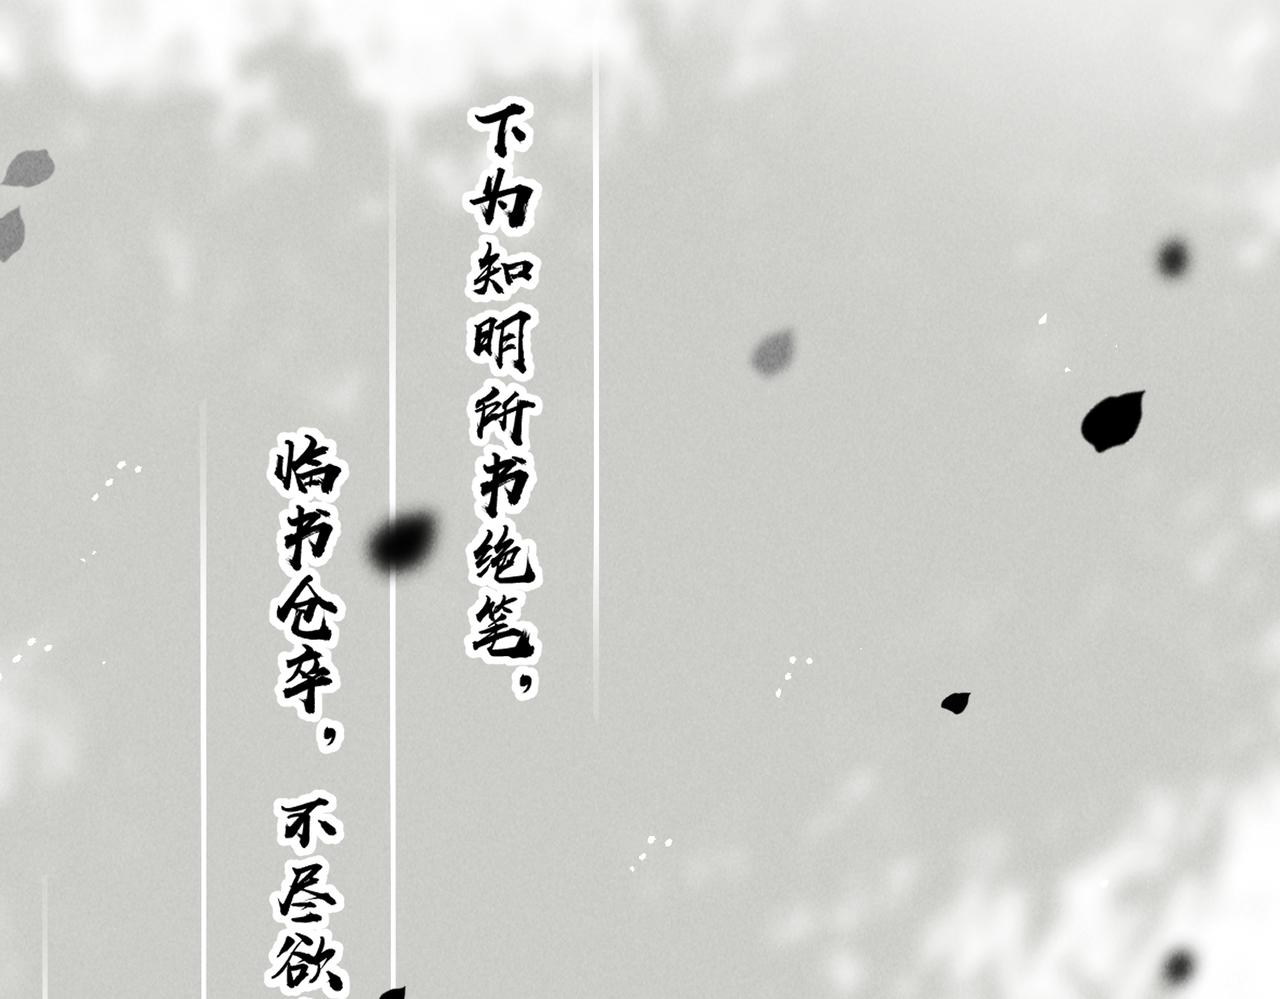 下为知明所书绝笔，
临书仓卒，不尽欲